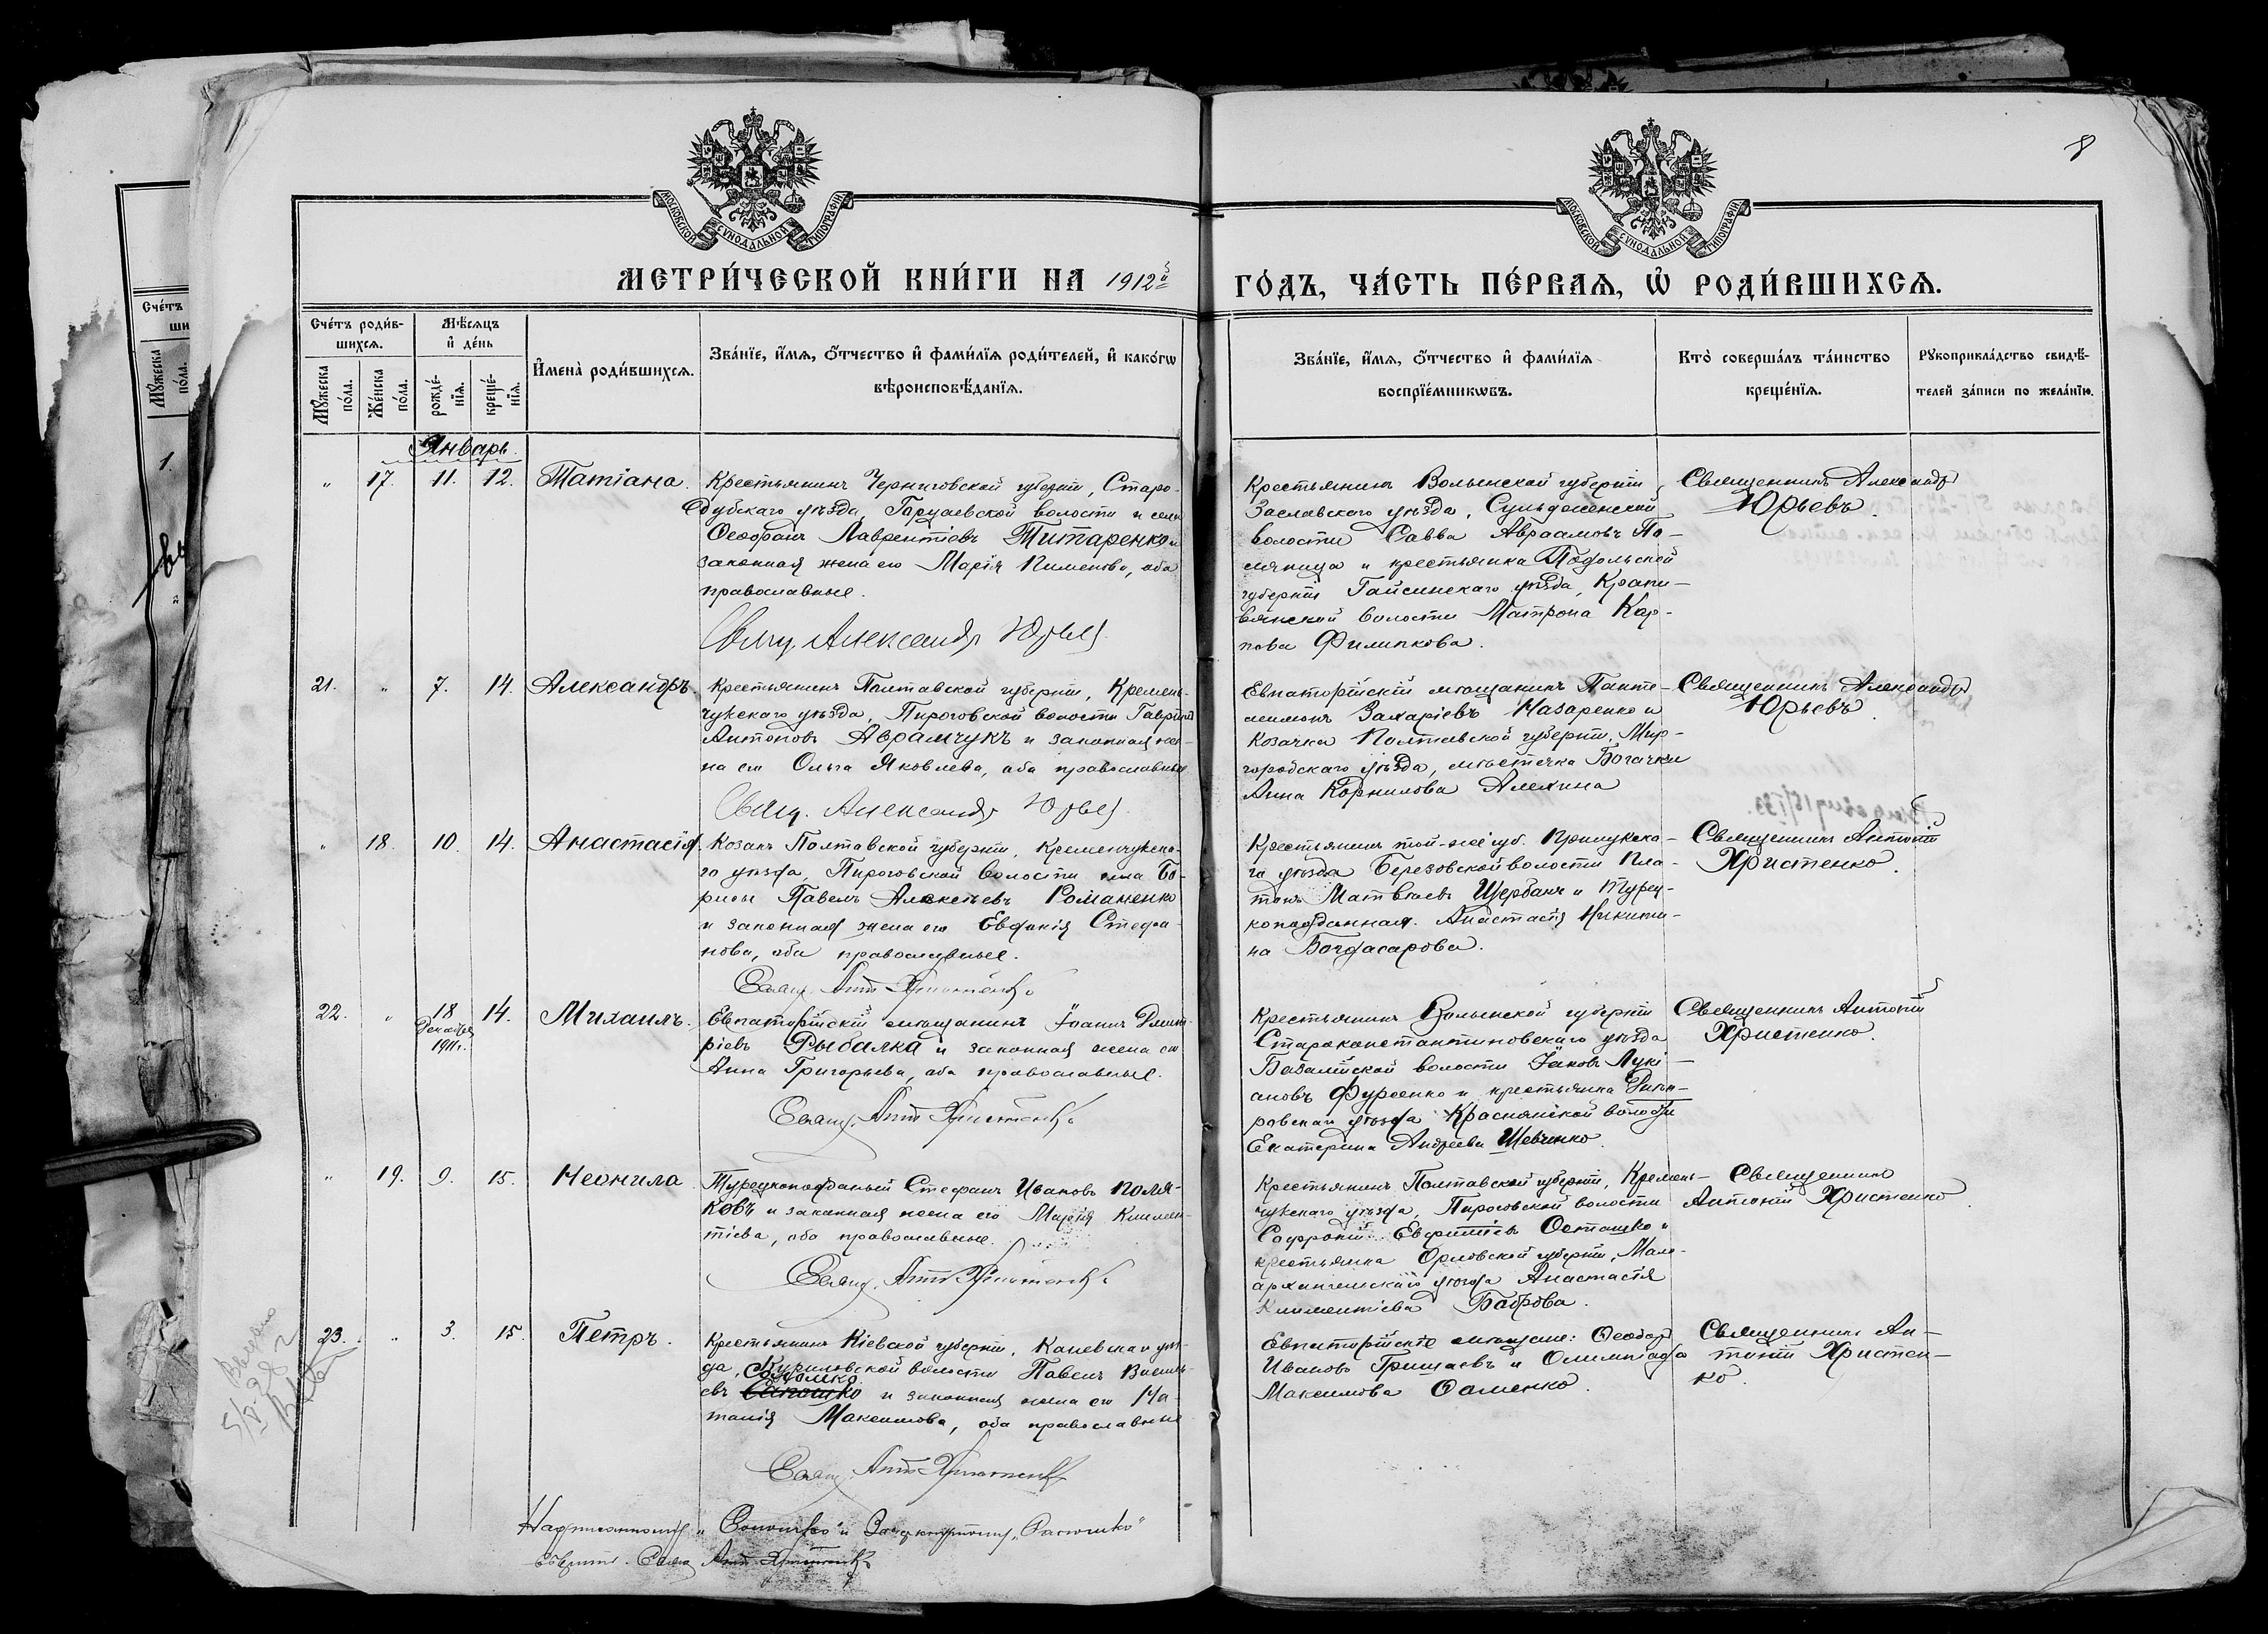 8
МОСКОВСКОЙ СѴНОДАЛЬНОЙ ТИПОГРАФІИ
МОСКОВСКОЙ СѴНОДАЛЬНОЙ ТИПОГРАФІИ
МЕТРИ́ЧЕСКОЙ КНИ́ГИ НА 1912й
ГО́ДЪ, ЧА́СТЬ ПЕ́РВАѦ, Ѡ҆ РОДИ́ВШИХСѦ.
Сче́тъ роди́в-
шихсѧ.
Мѣ́сѧцъ
и҆ де́нь
Мꙋ́жеска по́ла.
Же́нска по́ла.
рожде́-
нїѧ.
креще́-
нїѧ.
И҆мена̀ роди́вшихсѧ.
Зва́нїе, и҆́мѧ, ѻ҆́тчество и҆ фами́лїѧ роди́телей, и҆ како́гѡ
вѣроисповѣ́данїѧ.
Зва́нїе, и҆́мѧ, ѻ҆́тчество и҆ фами́лїѧ
воспрїе́мникѡвъ.
Кто̀ соверша́лъ та́инство
креще́нїѧ.
Рꙋкоприкла́дство свидѣ́-
телей за́писи по жела́нїю.
Январь.
" 17. 11. 12. Татіана.
Крестьянинъ Черниговской губерніи, Старо-
дубскаго уѣзда, волости и села
Ѳеофанъ Лаврентіевъ Титаренко и
законная жена его Марія Пименова, оба
православные.
Свящ. Александръ Юрьев
Крестьянинъ Волынской губерніи,
Заславскаго уѣзда,
волости Савва Авраамовъ По-
ляница и крестьянка Подольской
губерніи Гайсинскаго уѣзда, Крапи-
вянской волости Матрона Кар-
пова Филипкова.
Священникъ Александръ
Юрьевъ.
21. " 7. 14. Александръ.
Крестьянинъ Полтавской губерніи, Кремен-
чугскаго уѣзда, Пироговской волости Гавріилъ
Антоновъ Аврамчукъ и законная же-
на его Ольга Яковлева, оба православные
Свящ. Александръ Юрьев
Евпаторійскій мѣщанинъ Панте-
леимонъ Захаріевъ Назаренко и
козачка Полтавской губерніи, Мир-
городскаго уѣзда, мѣстечка Богачки
Анна Корнилова Алехина
Священникъ Александръ
Юрьевъ.
" 18. 10. 14. Анастасія.
Козакъ Полтавской губерніи, Кременчугска-
го уѣзда, Пироговской волости села Бо-
рисы Павелъ Алексѣевъ Романенко
и законная жена его Евфимія Стефа-
нова, оба православные.
Свящ. Ант. Христенко
Крестьянинъ той-же губ. Прилукска-
го уѣзда Березовской волости Пла-
тонъ Матвѣевъ Щербакъ и турец-
коподданная Анастасія Никити-
на Богдасарова.
Священникъ Антоній
Христенко.
22. " 18 Декабря 1911г. 14. Михаилъ.
Евпаторійскій мѣщанинъ Іоаннъ Димит-
ріевъ Рыбалка и законная жена его
Анна Григорьева, оба православные.
Свящ. Ант. Христенко
Крестьянинъ Волынской губерніи
Староконстантиновскаго уѣзда
Базалійской волости Іаковъ Лукі-
ановъ Фурсенко и крестьянка Днѣп-
ровскаго уѣзда Краснянской волости
Екатерина Андреева Шевченко.
Священникъ Антоній
Христенко.
" 19. 9. 15. Неонила
Турецкоподданый Стефанъ Ивановъ Поля-
ковъ и законная жена его Марія Климен-
тіева, оба православные.
Свящ. Ант. Христенко
Крестьянинъ Полтавской губерніи, Кремен-
чугскаго уѣзда, Пироговской волости
Софроній Евфиміевъ Осташко и
крестьянка Орловской губерніи, Мало-
архангельскаго уѣзда Анастасія
Климентіева Боброва.
Священникъ
Антоній Христенко.
23. " 3. 15. Петръ.
Крестьянинъ Кіевской губерніи, Каневскаго уѣз-
да, волости Павелъ Василь-
евъ и законная жена его На-
талія Максимова, оба православные
Свящ. Ант. Христенко
Евпаторійскіе мѣщане: Ѳеодоръ
Ивановъ Гришаевъ и Олимпіада
Максимова
Священникъ Ан-
тоній Христен-
ко.
Надписанному и зачеркнутому
вѣрить. Свящ. Ант. Христенко